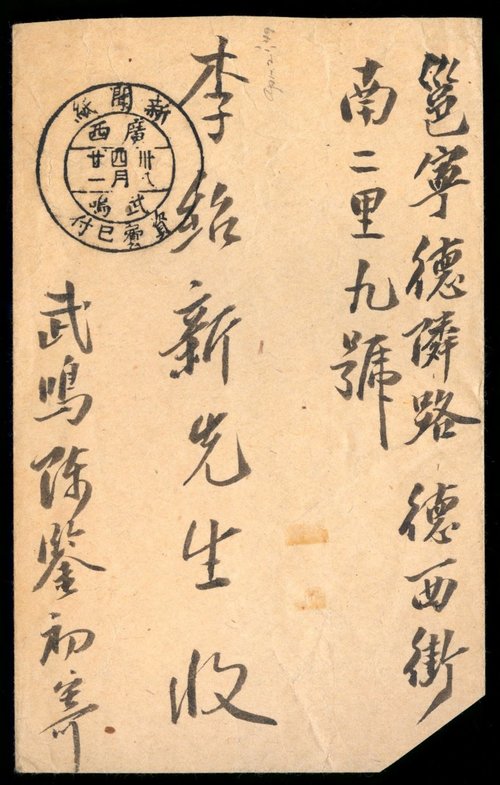 邕寧德隣路 德西街
南二里九號
李紹新先生 收
武鳴陳鑒初寄
新聞紙
廣西
卅八
四月
廿一
武鳴
資費已付